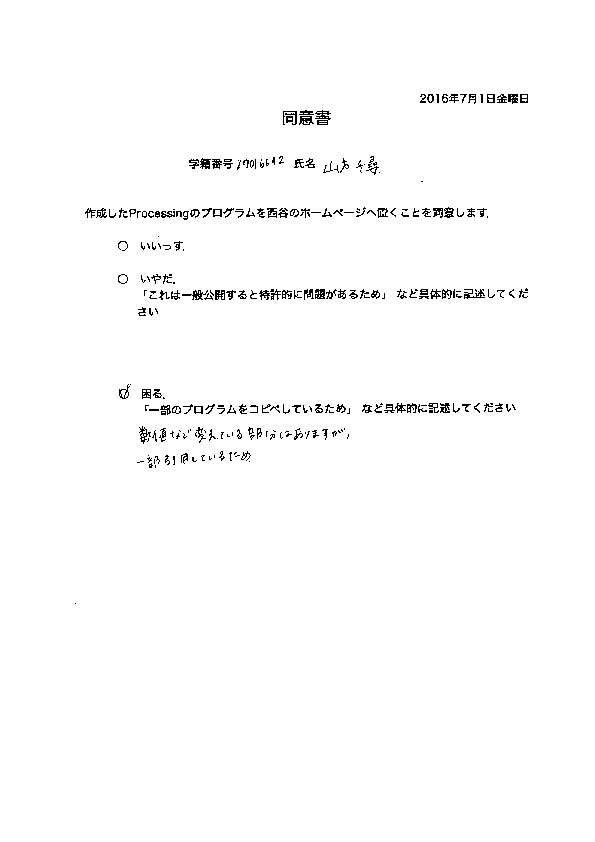 2016年7月1日金曜日
同意書
学籍番号 氏名 山方 千尋
作成したProcessingのプログラムを西谷のホームページへ置くことを同意します.
○ いいっす.
○ いやだ.
「これは一般公開すると特許的に問題があるため」 など具体的に記述してくだ
さい
困る.
「一部のプログラムをコピペしているため」 など具体的に記述してください
数値など変えている部分はありますが,
一部引用しているため